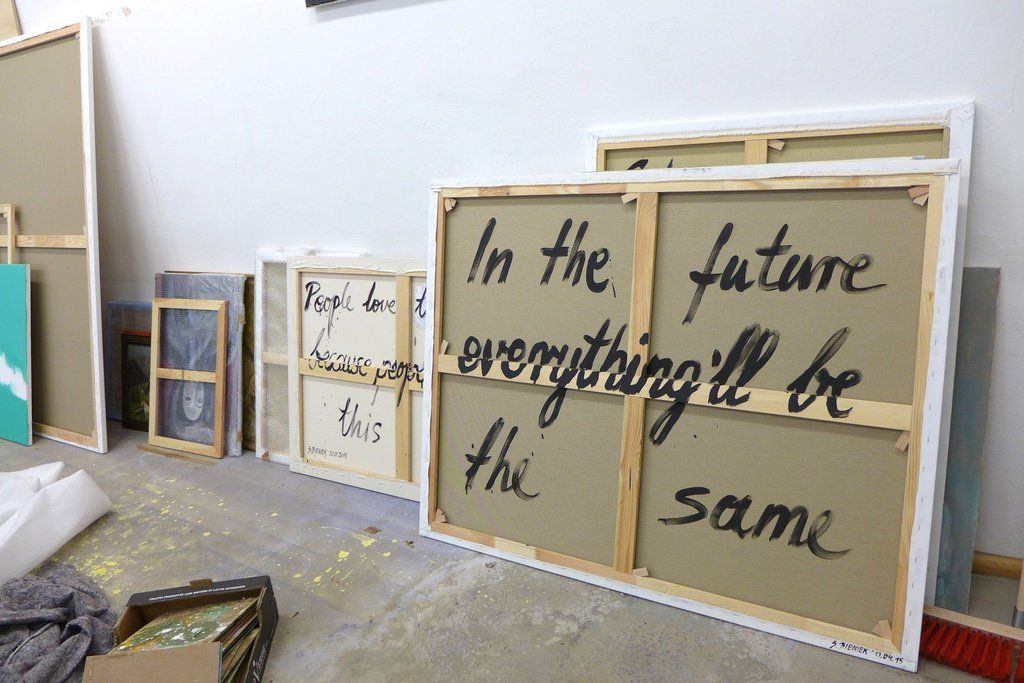 In the future
everything'll be
the same
S. BIENIEK '13.04.15
People love
because people
this
S. BIENIEK 20.01.2015